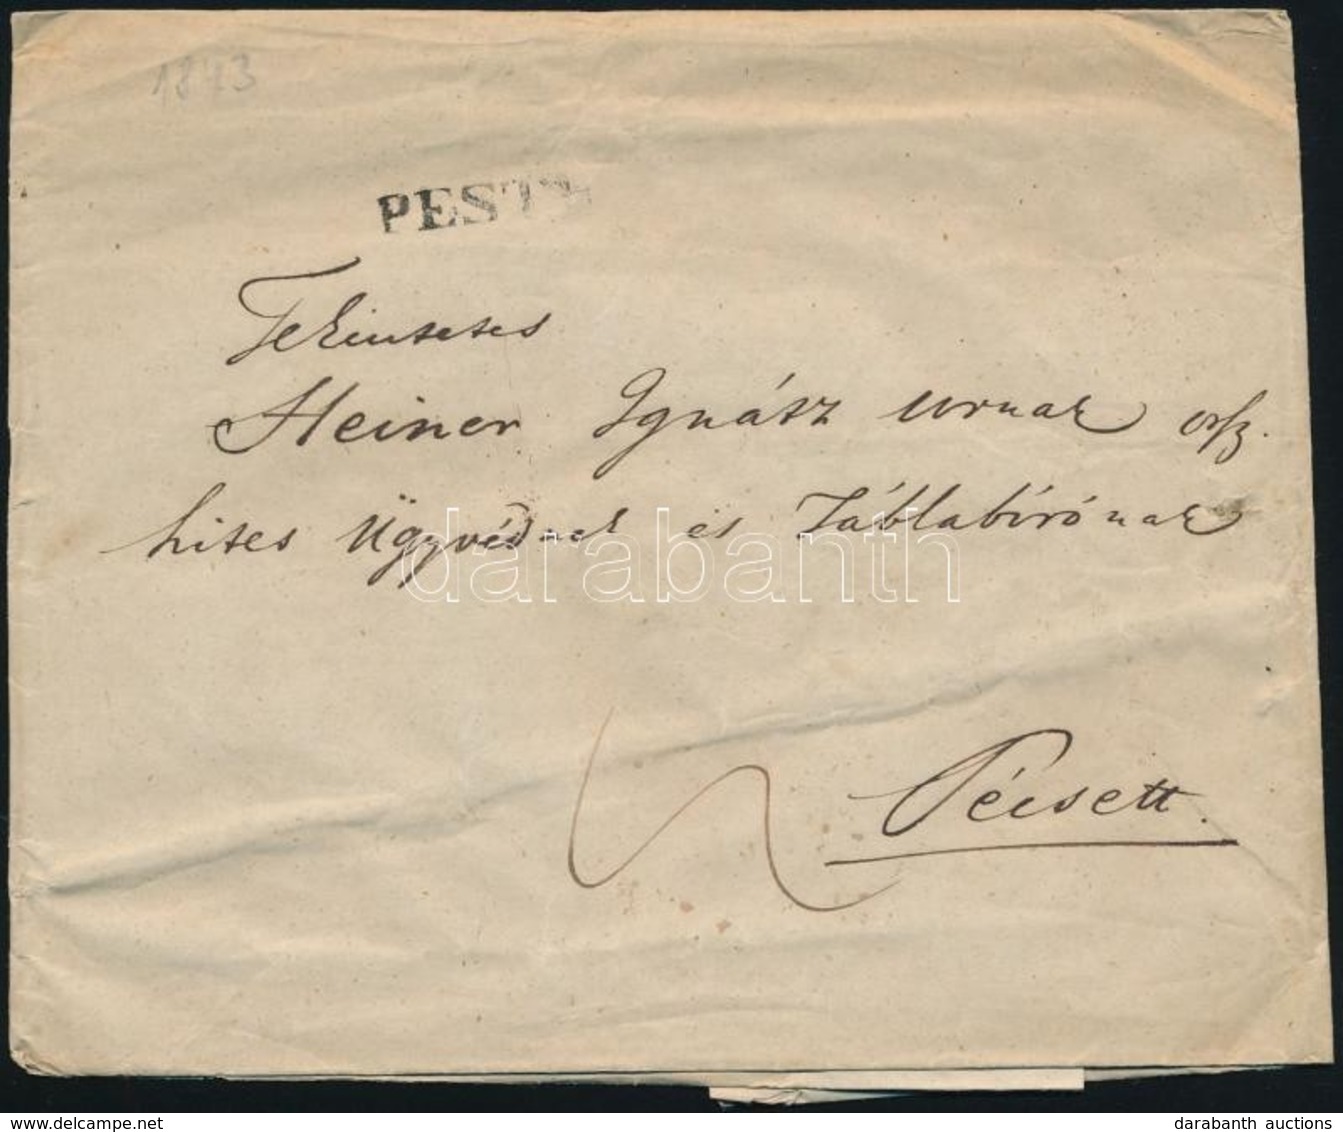 1843
PESTH
Tekintetes
Heiner Ignász urnak orsz.
hites Ügyvédnek es Táblabírónak
darabanth
Pécsett.
darabanth auctions